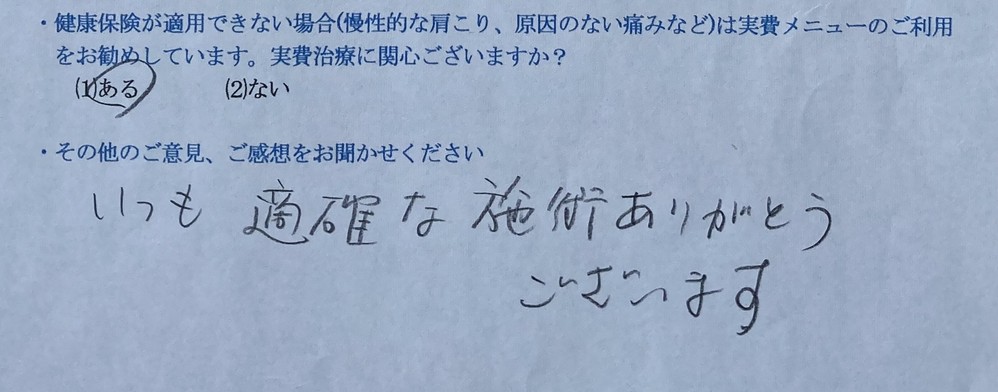 ・健康保険が適用できない場合(慢性的な肩こり、原因のない痛みなど)は実費メニューのご利用
をお勧めしています。実費治療に関心ございますか？
(1)ある (2)ない
・その他のご意見、ご感想をお聞かせください
いつも 適確な 施術ありがとう
ございます